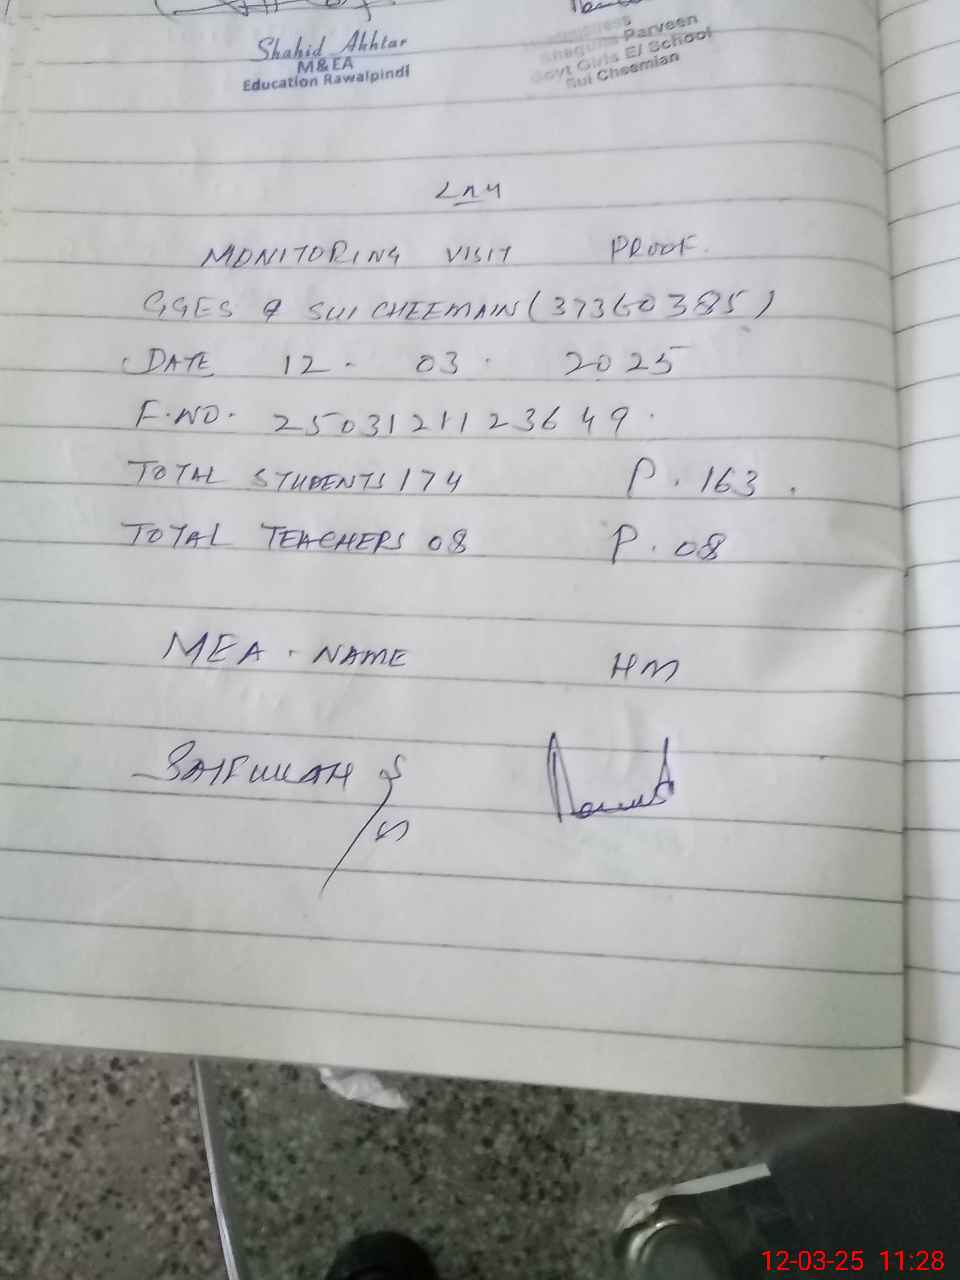 Shahid Akhtar
M&EA
Education Rawalpindi
Parveen
Govt Girls E/ School
Sui Cheemian
MONITORING VISIT PROOF.
GGES SUI CHEEMAIN (37360385)
DATE 12 - 03 - 2025
F.NO. 2503121123649.
TOTAL STUDENTS 174 P. 163.
TOTAL TEACHERS 08 P. 08
MEA. NAME HM
SAIFULLAH
12-03-25 11:28